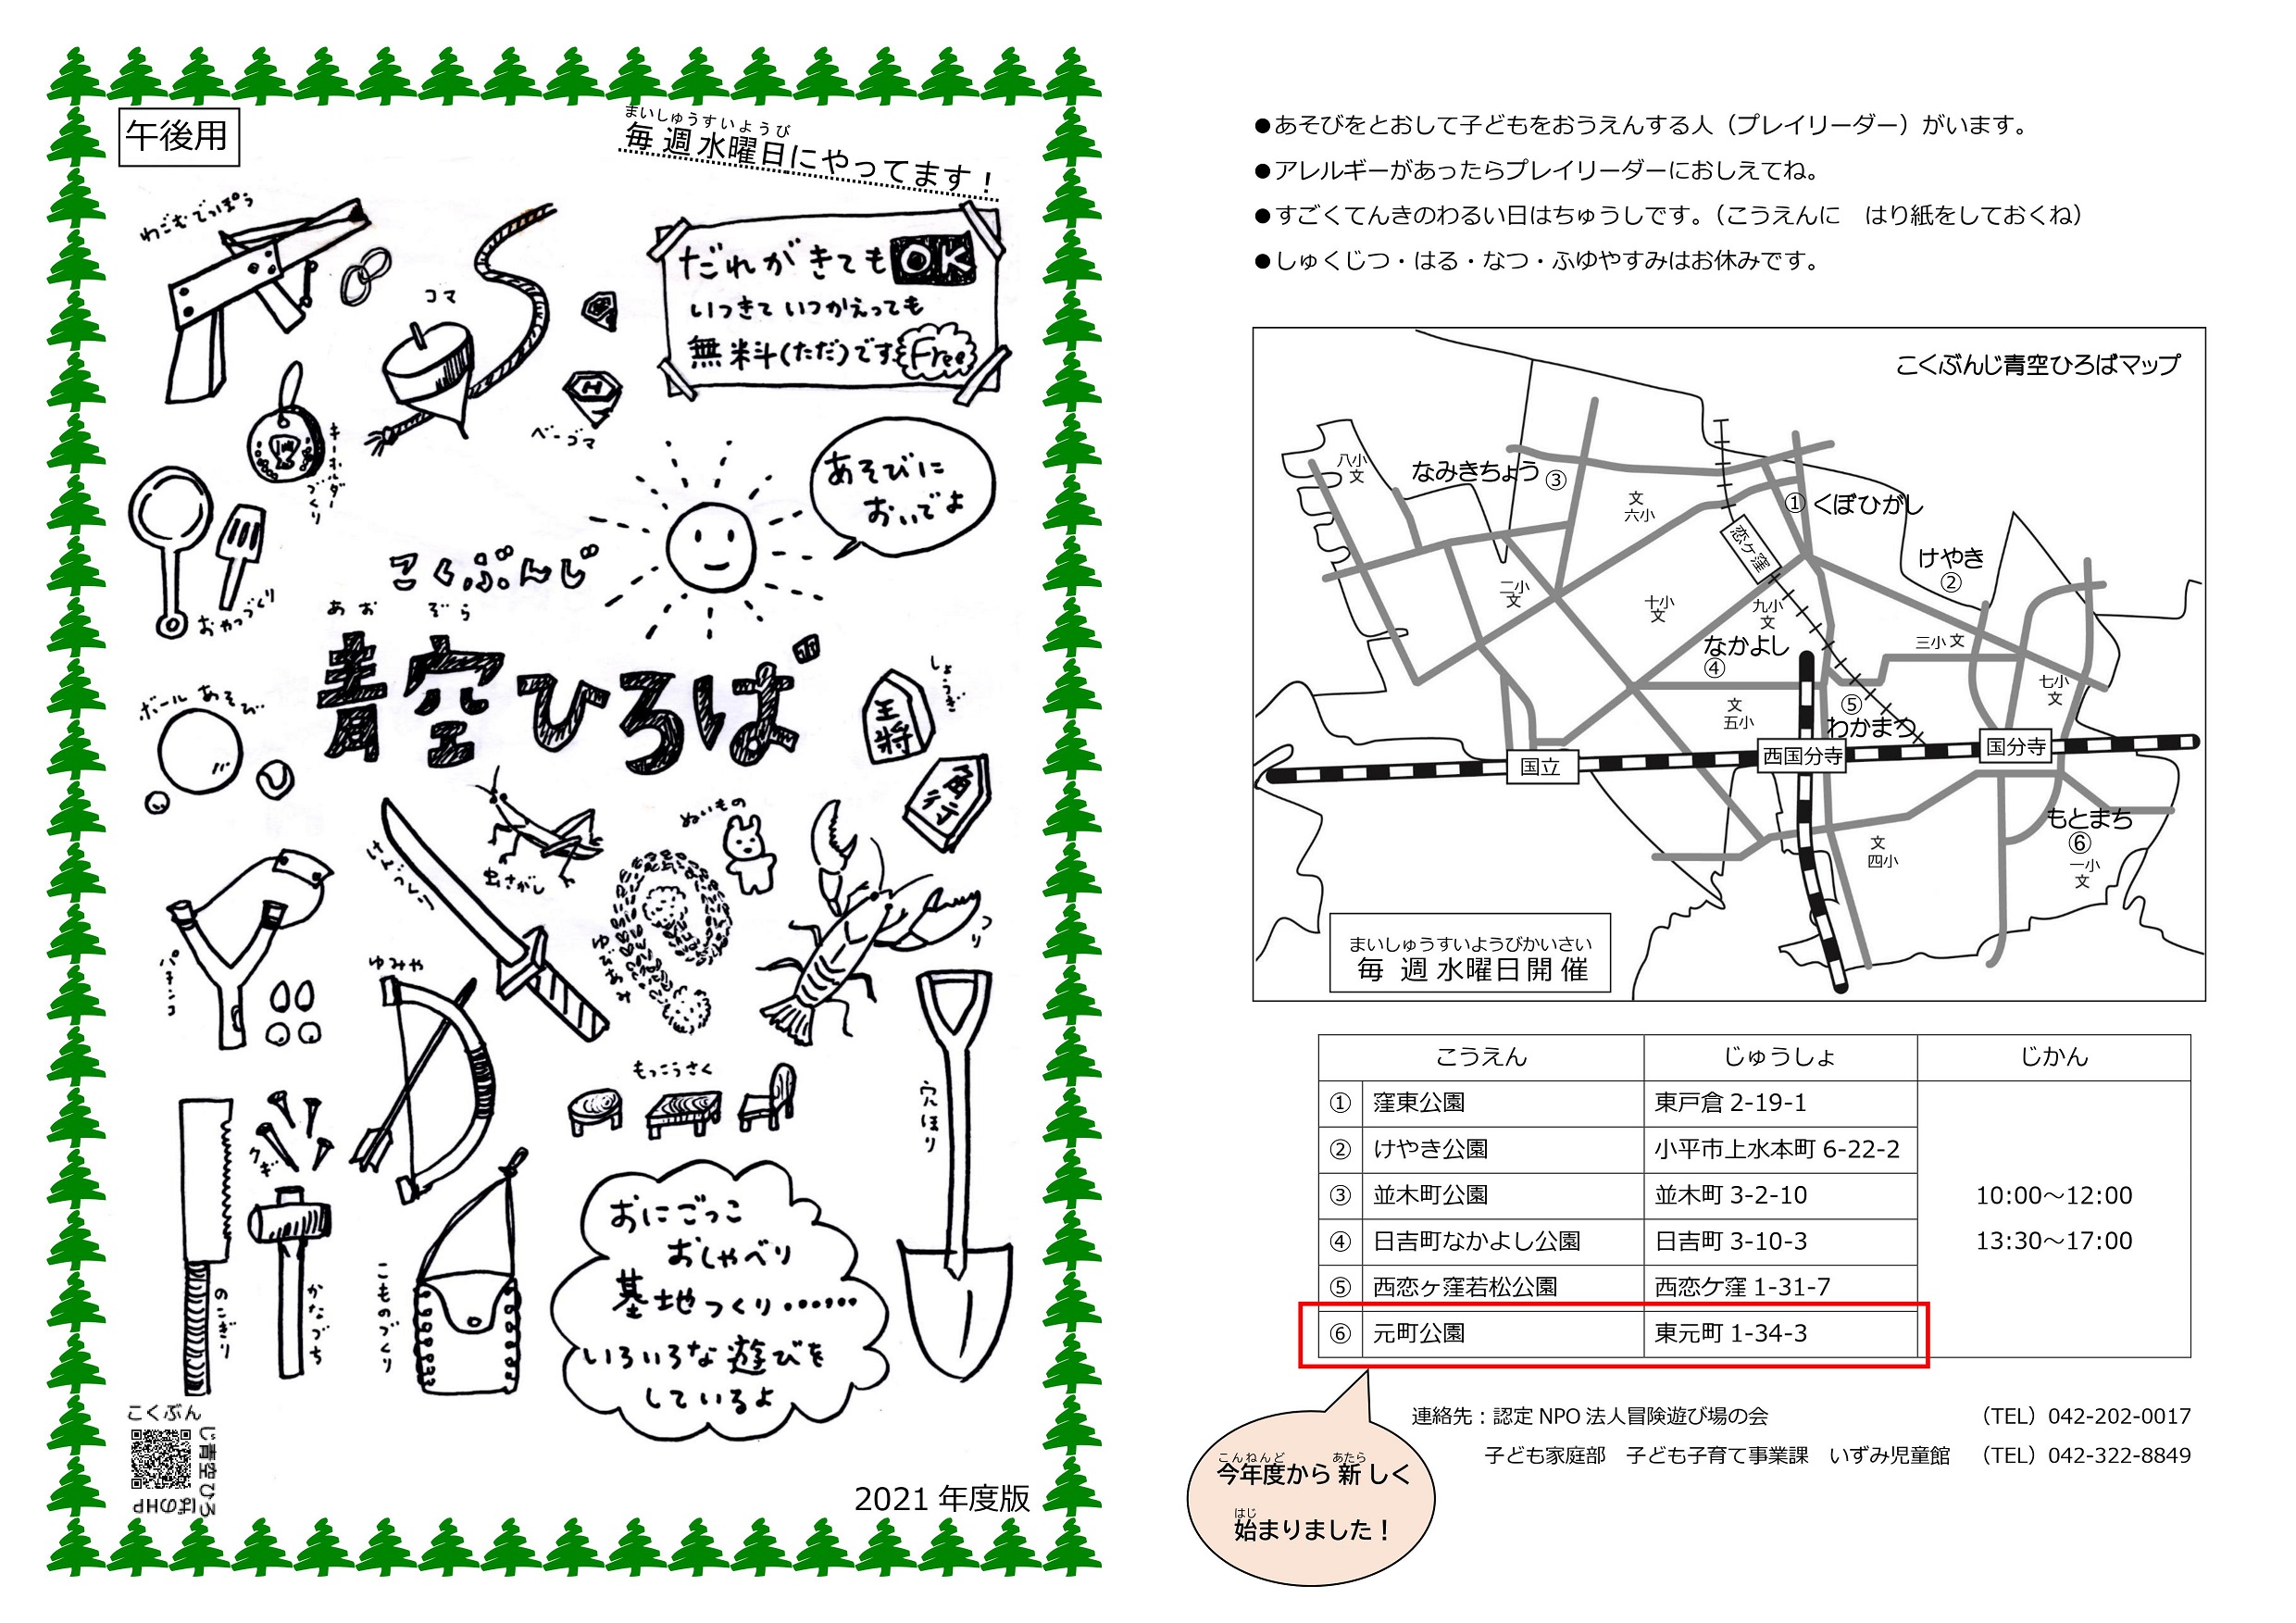 午後用
まいしゅうすいようび
毎週水曜日にやってます！
わごむでっぽう
コマ
ベーゴマ
だれがきてもOK
いつきていつかえっても
無料(ただ)です Free
キーホルダーづくり
あそびに
おいでよ
おやつづくり
こくぶんじ
あおぞら
青空ひろば
ボールあそび
しょうぎ
王将
角行
けんづくり
虫さがし
ぬいもの
ゆびあみ
つり
パチンコ
ゆみや
もっこうさく
穴ほり
クギ
のこぎり
かなづち
こものづくり
おにごっこ
おしゃべり
基地つくり……
いろいろな遊びを
しているよ
こくぶんじ青空ひろばのHP
2021年度版
●あそびをとおして子どもをおうえんする人（プレイリーダー）がいます。
●アレルギーがあったらプレイリーダーにおしえてね。
●すごくてんきのわるい日はちゅうしです。（こうえんに　はり紙をしておくね）
●しゅくじつ・はる・なつ・ふゆやすみはお休みです。
こくぶんじ青空ひろばマップ
八小
文
なみきちょう③
文
六小
①くぼひがし
恋ケ窪
けやき
②
二小
文
十小
文
九小
文
なかよし
④
三小文
七小
文
文
五小
⑤
わかまつ
国立
西国分寺
国分寺
もとまち
⑥
一小
文
文
四小
まいしゅうすいようびかいさい
毎週水曜日開催
こうえん じゅうしょ じかん
① 窪東公園 東戸倉 2-19-1
② けやき公園 小平市上水本町 6-22-2
③ 並木町公園 並木町 3-2-10 10:00～12:00
④ 日吉町なかよし公園 日吉町 3-10-3 13:30～17:00
⑤ 西恋ヶ窪若松公園 西恋ケ窪 1-31-7
⑥ 元町公園 東元町 1-34-3
連絡先：認定 NPO 法人冒険遊び場の会 （TEL）042-202-0017
子ども家庭部　子ども子育て事業課　いずみ児童館 （TEL）042-322-8849
こんねんど あたら
今年度から新しく
はじ
始まりました！